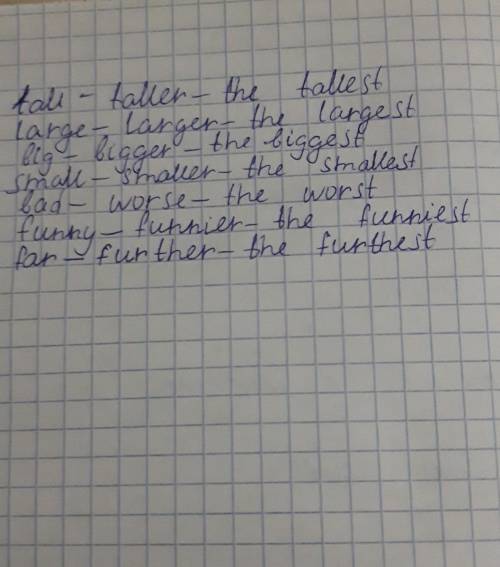 tall - taller - the tallest
large - larger - the largest
big - bigger - the biggest
small - smaller - the smallest
bad - worse - the worst
funny - funnier - the funniest
far - further - the furthest